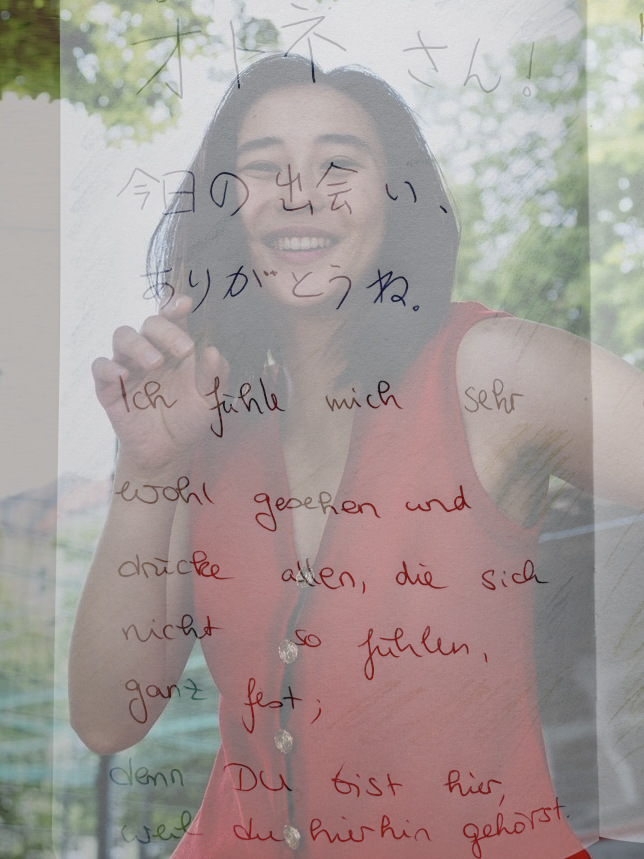 オトネ さん!
今日の出会い、
ありがとうね。
Ich fühle mich sehr
wohl gesehen und
drücke allen, die sich
nicht so fühlen,
ganz fest;
denn DU bist hier,
weil du hierhin gehörst.